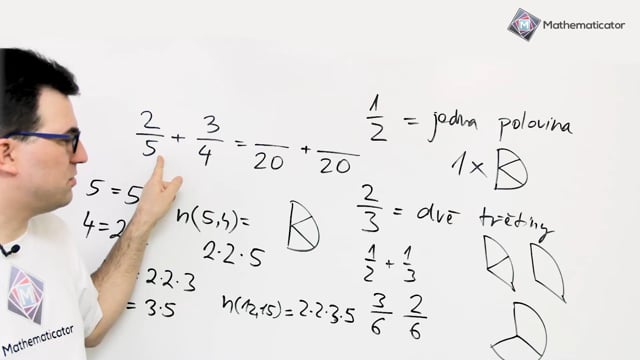 Mathematicator
2/5 + 3/4 = /20 + /20
1/2 = jedna polovina
1×
5 = 5
n(5,4) =
4 = 2
2·2·5
2/3 = dvě třetiny
1/2 + 1/3
·2·2·3
= 3·5
n(12,15) = 2·2·3·5
3/6 2/6
Mathematicator